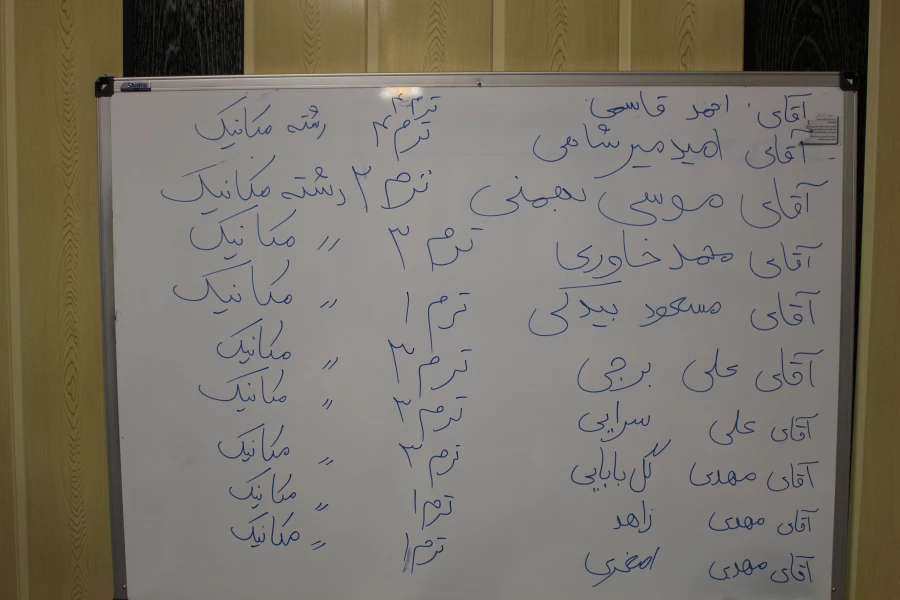 آقای احمد قاسمی ترم ۴ رشته مکانیک
آقای امید میرشاهی ترم ۴
آقای موسی بهمنی ترم ۲ رشته مکانیک
آقای محمد خاوری ترم ۳ 〃 مکانیک
آقای مسعود بیدکی ترم ۱ 〃 مکانیک
آقای علی برجی ترم ۳ 〃 مکانیک
آقای علی سرایی ترم ۳ 〃 مکانیک
آقای مهدی گل بابایی ترم ۳ 〃 مکانیک
آقای مهدی زاهد ترم ۱ 〃 مکانیک
آقای مهدی اصغری ترم ۱ 〃 مکانیک